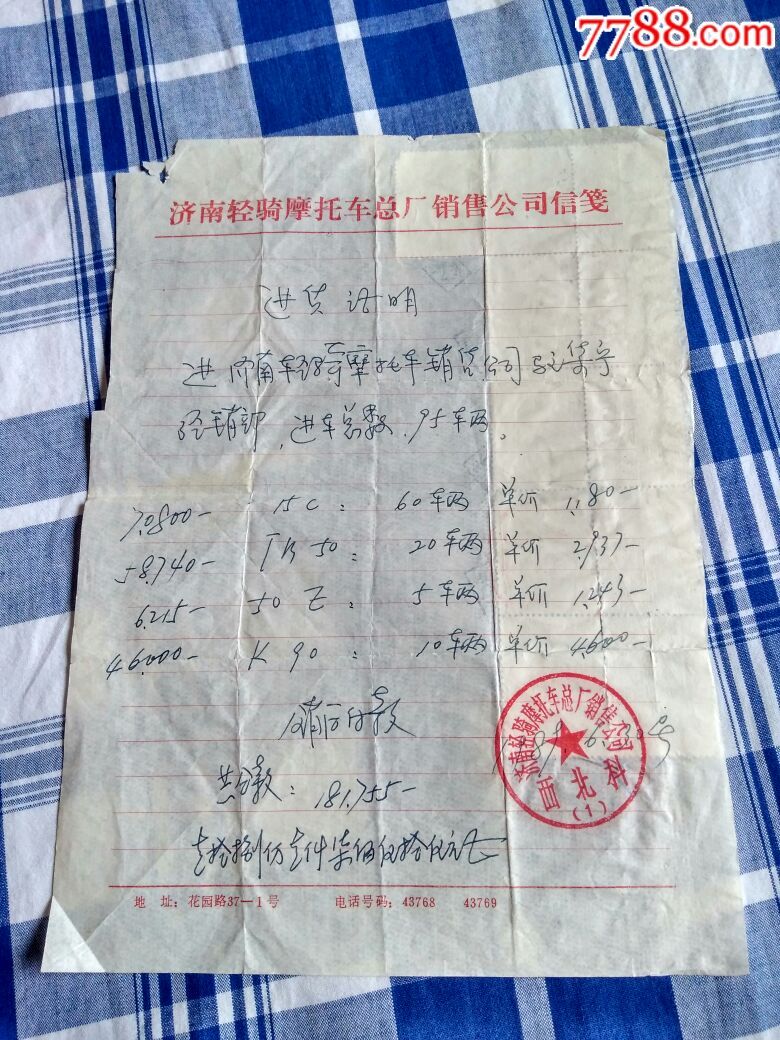 7788.com
济南轻骑摩托车总厂销售公司信笺
进货证明
进济南轻骑摩托车销售公司驻集宁
经销部,进车总数,95车两。
70800— 15C: 60车两 单价 1,180—
58.740— TB50: 20车两 单价 2,937—
6.215— 50Z: 5车两 单价 1,243—
46.000— K90: 10车两 单价 4,600—
销后付款
共合款: 181,755—
壹拾捌万壹仟柒佰伍拾伍元正
济南轻骑摩托车总厂销售公司
西北科
(1)
地 址: 花园路37—1号 电话号码: 43768 43769